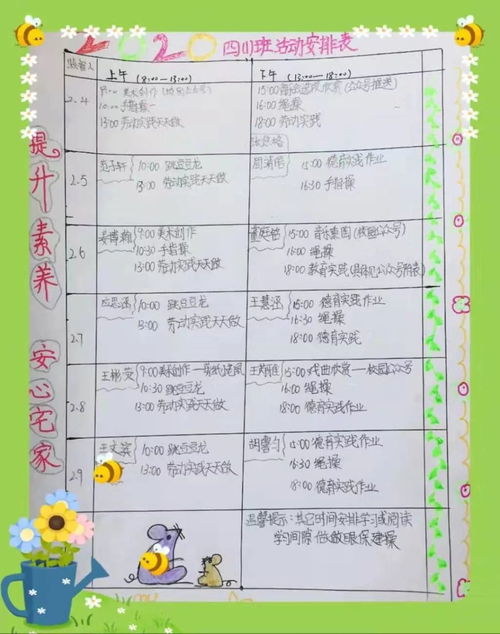 2020 四(1)班活动安排表
提升素养 安心宅家
监督人
上午 (8:00-13:00)
下午 (13:00-18:00)
2.4
美术创作
10:00 手指操
13:00 劳动实践天天做
15:00 (公众号推送)
16:00 绳操
18:00 劳动实践
2.5
10:00 跳豆豆龙
13:00 劳动实践天天做
15:00 德育实践作业
16:30 手指操
2.6
9:00 美术创作
10:30 手指操
13:00 劳动实践天天做
15:00 音乐集图 (校园公众号)
16:00 绳操
18:00 教育实践 (具体见公众号附表)
2.7
应思涵
10:00 跳豆豆龙
13:00 劳动实践天天做
王慧涵
15:00 德育实践作业
16:30 绳操
18:00 德育实践
2.8
9:00 美术创作
10:30 跳豆豆龙
13:00 劳动实践天天做
15:00 戏曲欣赏——校园公众号
16:00 绳操
18:00 德育实践作业
2.9
10:00 跳豆豆龙
13:00 劳动实践天天做
15:00 德育实践作业
16:30 绳操
18:00 德育实践作业
温馨提示:其它时间安排学习或阅读
学习间隙 做做眼保健操